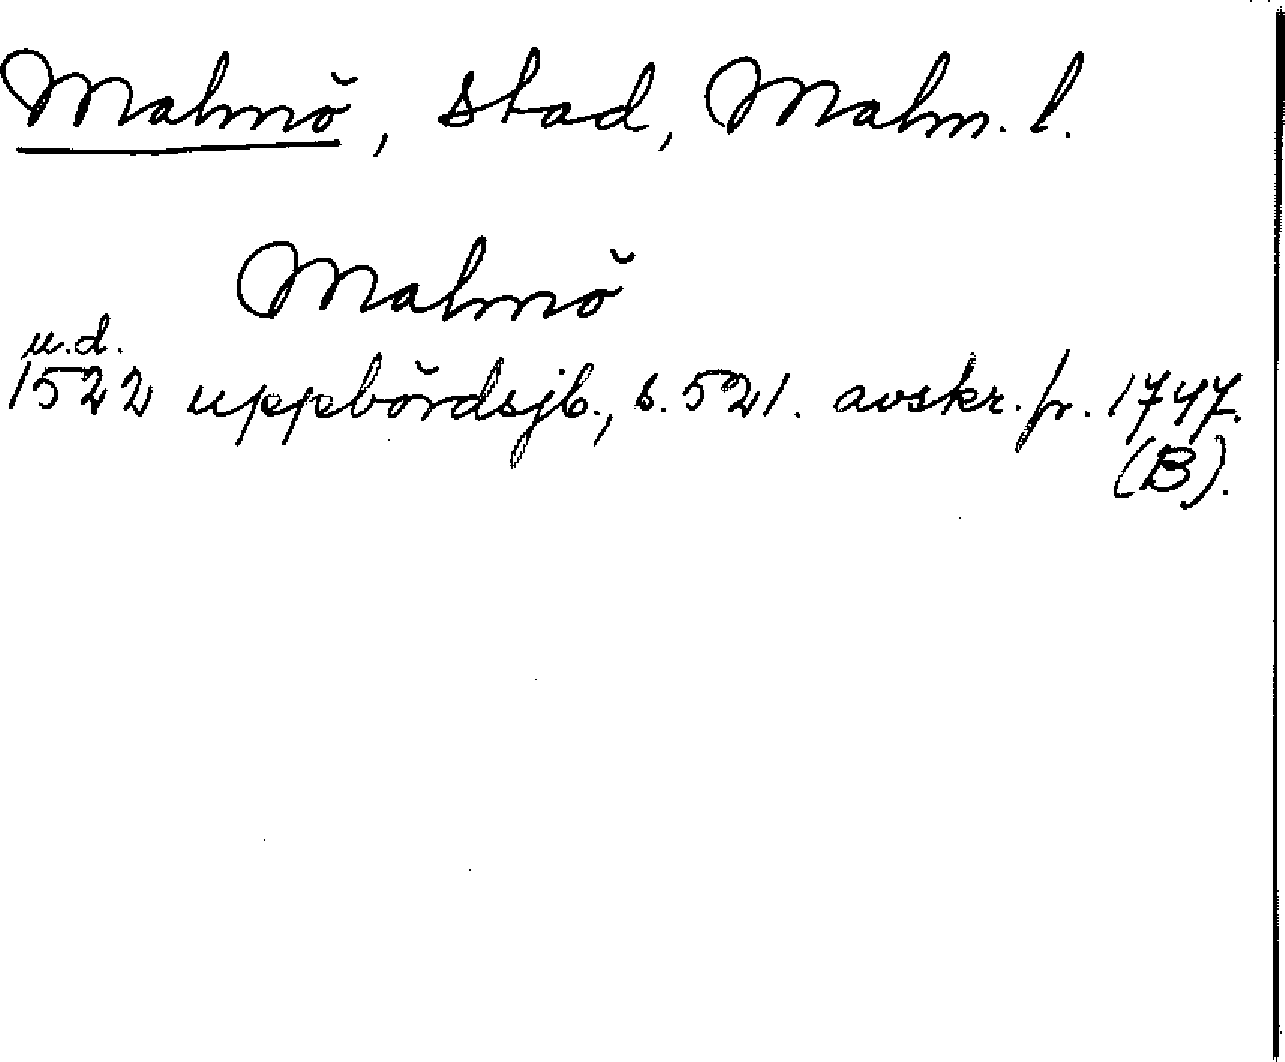 Malmö, stad, Malm. l.
Malmö
u.d.
1522 uppbördsjb., s. 521. avskr. fr. 1747.
(B).